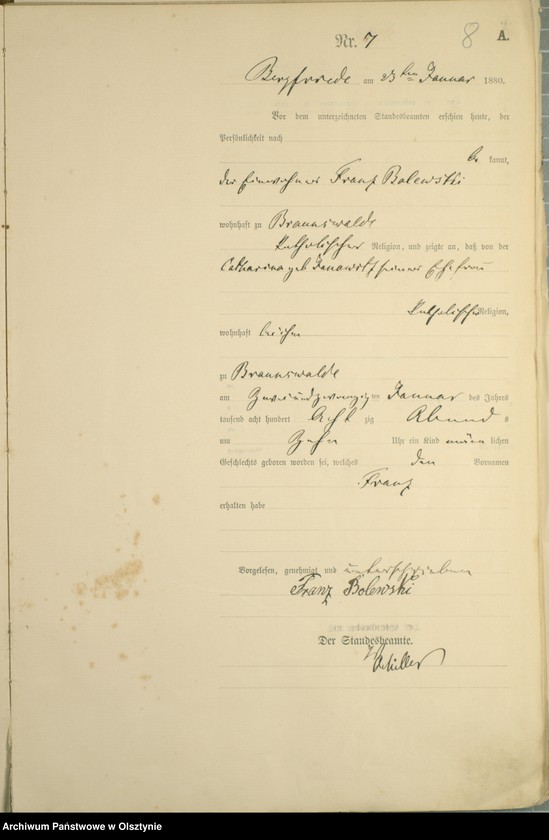 Nr. 7
8
A.
Bergfriede am 23ten Januar 1880.
Vor dem unterzeichneten Standesbeamten erschien heute, der
Persönlichkeit nach
be kannt,
der Einwohner Franz Bolewski
wohnhaft zu Braunswalde
katholischer Religion, und zeigte an, daß von der
Catharina geb. seiner Ehefrau
katholischer Religion,
wohnhaft bei ihm
zu Braunswalde
am Zweiundzwanzig ten Januar des Jahres
tausend acht hundert Acht zig Abend s
um Zehn Uhr ein Kind männ lichen
Geschlechts geboren worden sei, welches den Vornamen
Franz
erhalten habe
Vorgelesen, genehmigt und unterschrieben
Franz Bolewski
Der Standesbeamte.
Müller
Archiwum Państwowe w Olsztynie